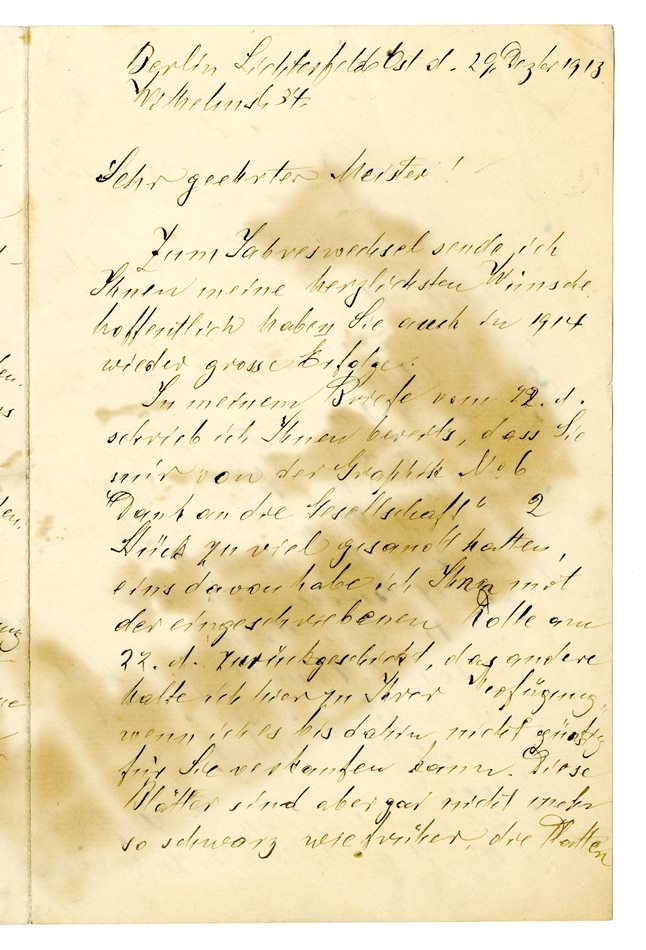 Berlin Lichterfelde Ost d. 29. Dezbr 1913.
Wilhelmstr 34.
Sehr geehrter Meister!
Zum Jahreswechsel sende ich
Ihnen meine herzlichsten Wünsche,
hoffentlich haben Sie auch in 1914
wieder grosse Erfolge.
In meinem Briefe vom 22. d.
schrieb ich Ihnen bereits, dass Sie
mir von der Graphik No 6
"Dank an die Gesellschaft" 2
Stück zu viel gesandt hatten,
eins davon habe ich Ihnen mit
der eingeschriebenen Rolle am
22. d. zurückgeschickt, das andere
halte ich hier zu Ihrer Verfügung,
wenn ich es bis dahin nicht günstig
für Sie verkaufen kann. Diese
Blätter sind aber gar nicht mehr
so schwarz wie früher, die Platten